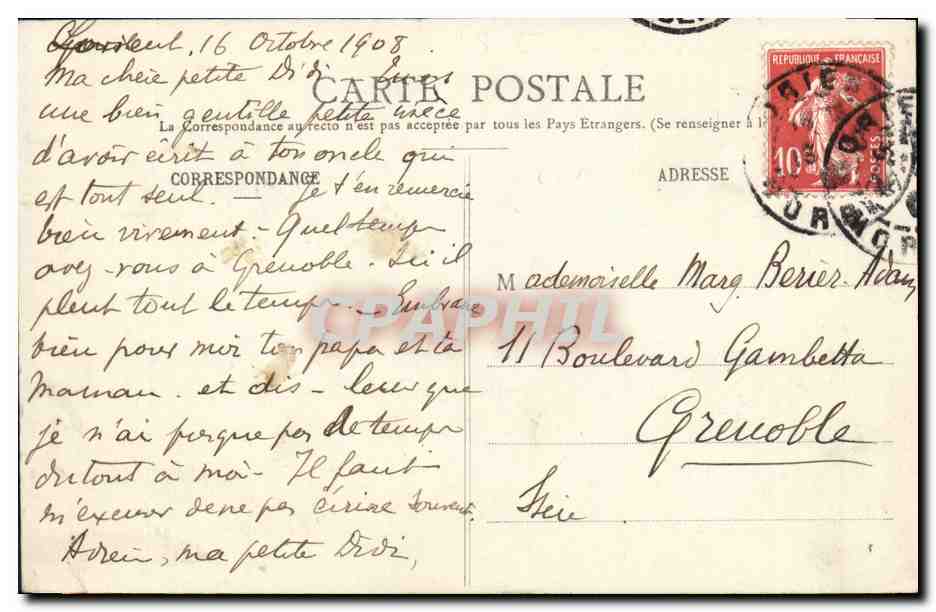 16 Octobre 1908.
Ma chère petite Didi
CARTE POSTALE
une bien gentille petite nièce
La Correspondance au recto n'est pas acceptée par tous les Pays Etrangers. (Se renseigner à
d'avoir écrit à ton oncle qui
CORRESPONDANCE
est tout seul. — Je t'en remercie
bien vivement. - Quel temps
avez-vous à Grenoble. Ici il
pleut tout le temps. - Embrasse
bien pour moi ton papa et ta
Maman. et dis-leur que
je n'ai presque pas de temps
du tout à moi. Il faut
m'excuser de ne pas écrire souvent.
Adieu, ma petite Didi,
ADRESSE
REPUBLIQUE FRANÇAISE
10
POSTES
Mademoiselle Marg. Berier. Adam
11 Boulevard Gambetta
Grenoble
Isère
CPAPHIL